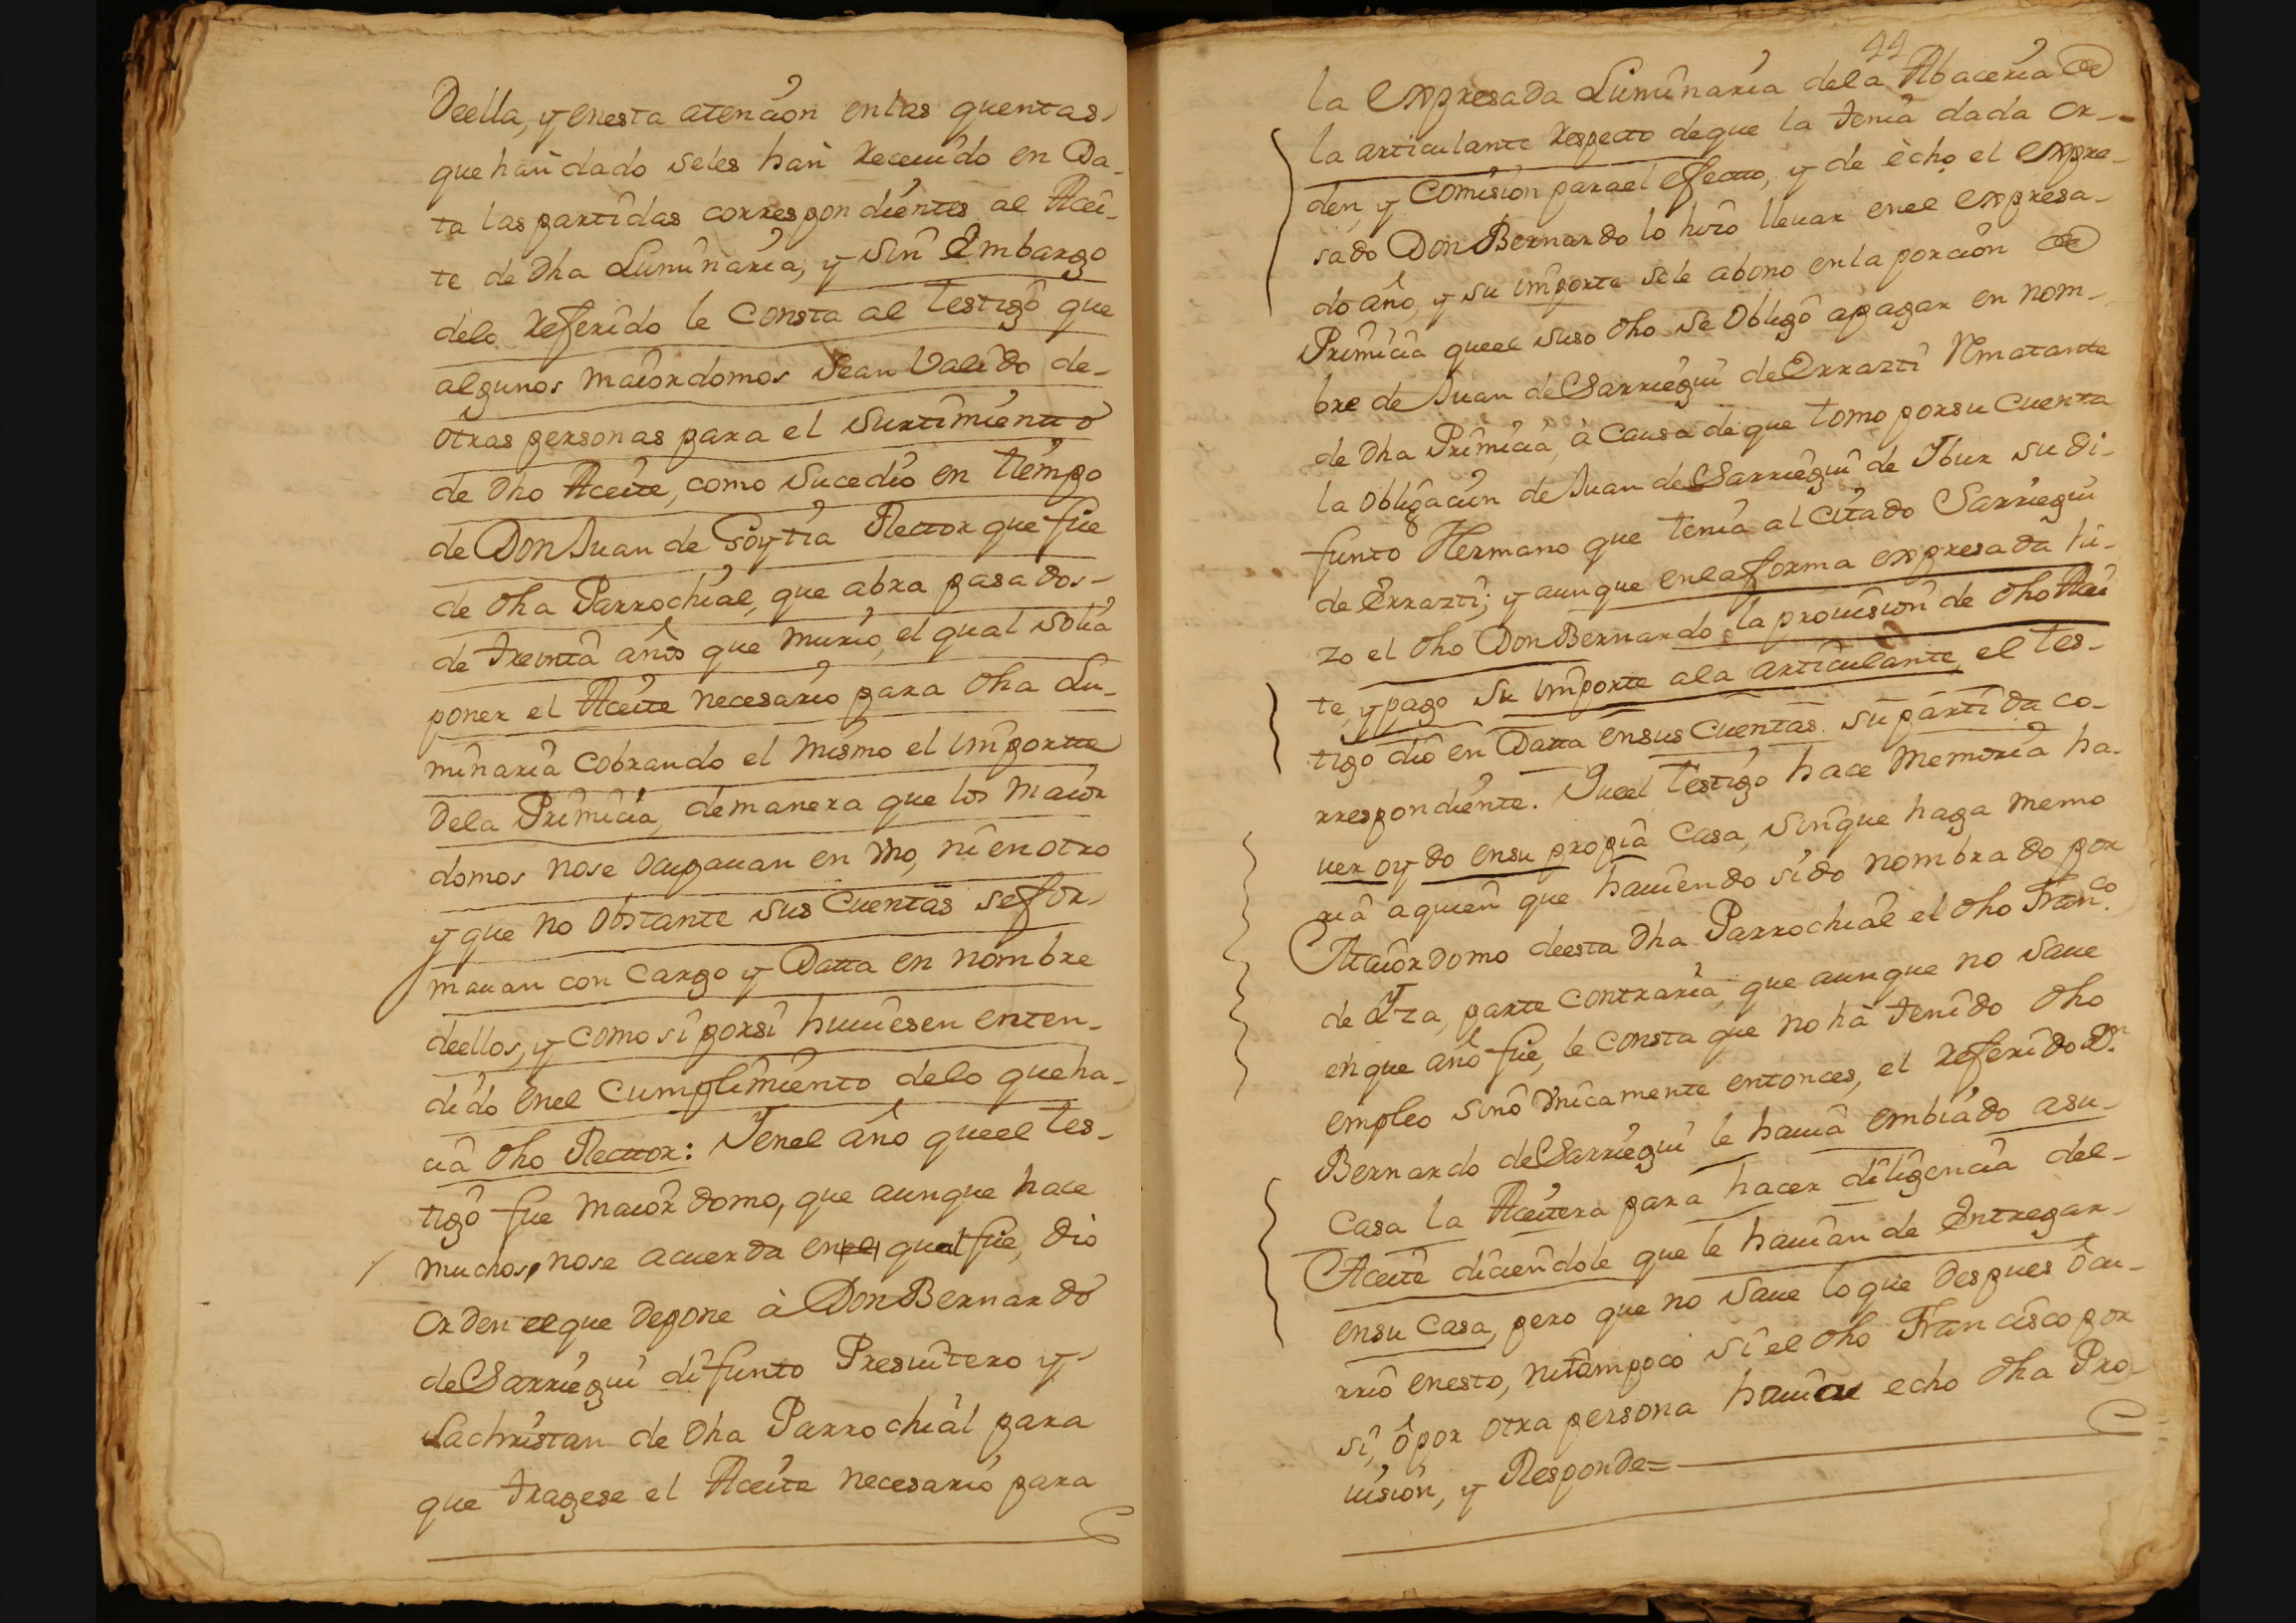 Deella, y enesta atencion enlas quentas
que han dado seles han Receuido en Da-
ta las partidas correspondientes al Acei-
te de Dha Luminaria, y sin Embargo
delo Referido le Consta al testigo que
algunos maiordomos sean Valido de-
otras personas para el surtimientto
de Dho Aceite, como sucedio en tiempo
de Don Juan de Goytia Rector que fue
de Dha Parrochial, que abra pasados-
de treinta años que murio, el qual solia
poner el Aceite necesario para Dha Lu-
minaria cobrando el mismo el importte
Dela Primicia, demanera que los maior
domos nose ocupauan en Vno, ni en otro
y que no obstante sus Cuentas sefor-
mauan con Cargo y Datta en nombre
deellos, y como si porsi huuiesen enten-
dido enel Cumplimiento delo que ha-
cia Dho Recttor: Y enel año queel tes-
tigo fue maiordomo, que aunque hace
muchos, nose acuerda en el qual fue, dio
Orden el que Depone à Don Bernardo
de Sarriegui difunto Presuitero y
Sachristan de Dha Parrochial para
que tragese el Aceite necesario para
44
la Expresada Luminaria dela Abaceria de
la articulante Respecto deque la tenia dada or-
den, y Comision parael efectto, y de echo el Expre-
sado Don Bernardo lo hizo lleuar enel Expresa-
do año, y su importe sele abono enla porcion de
Primicia queel suso Dho se obligo apagar en nom-
bre de Juan de Sarriegui de Errazti Rmatante
de Dha Primicia, à Causa de que tomo porsu Cuenta
la obligacion de Juan de Sarriegui de Ibur su di-
funto Hermano que tenia al citado Sarriegui
de Errazti; y aunque enlaforma expresada hi-
zo el Dho Don Bernardo la prouision de Dho Acei
te, y pago su importe ala articulante, el tes-
tigo dio en Datta ensus Cuentas su partida co-
rrespondiente. Queel testigo hace memoria ha-
uer oydo ensu propia Casa, sinque haga memo
ria aquien que hauiendo sido nombrado por
Maiordomo deesta Dha Parrochial el Dho Fran.co
de Yza, parte contraria, que aunque no saue
enque año fue, le consta que no ha tenido Dho
empleo sino Vnicamente entonces, el Referido Dn
Bernardo de Sarriegui le hauia embiado asu-
Casa la Aceitera para hacer diligencia del-
Aceite diciendole que le hauian de Entregar-
ensu Casa, pero que no saue lo que despues ocu-
rrio enesto, nitampoco si el Dho Francisco por
si, ô por otra persona hauia echo Dha Pro-
uision, y Responde=